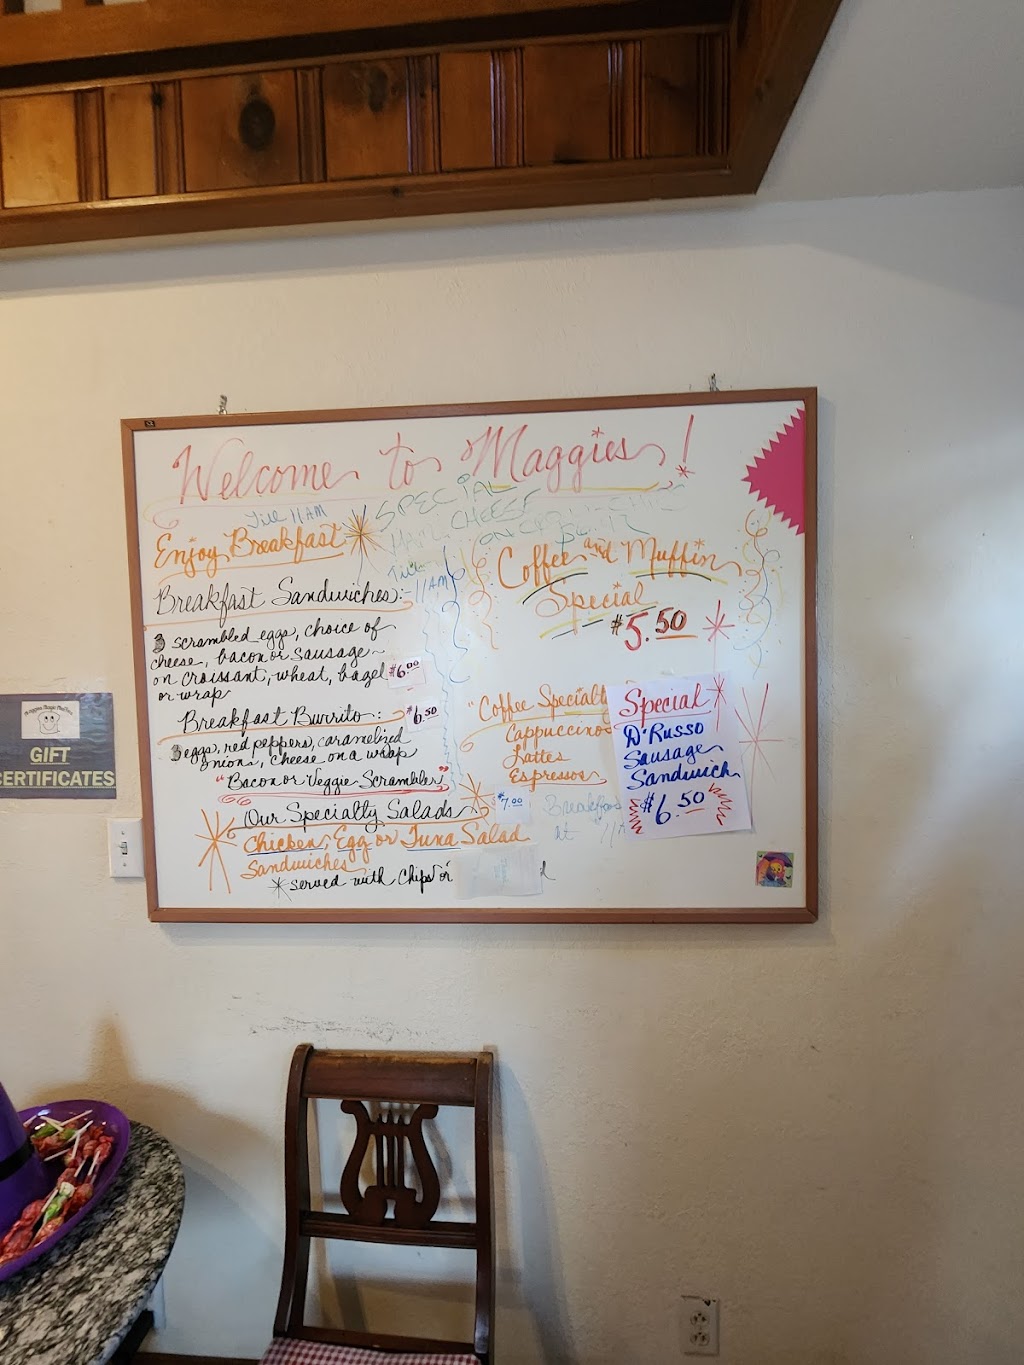 Welcome to Maggies!
Till 11 AM
SPECIAL
CHEESE
Enjoy Breakfast
Till
11 AM
Breakfast Sandwiches:
3 scrambled eggs, choice of
cheese, bacon or sausage
on croissant, wheat, bagel $6.00
or wrap
Breakfast Burrito: $6.50
3 eggs, red peppers, caramelized
onions, cheese on a wrap
"Bacon or Veggie Scrambler"
Our Specialty Salads $7.00
Chicken, Egg or Tuna Salad
Sandwiches
served with Chips or
Coffee and Muffin
Special
$5.50
"Coffee Specialty
Cappuccinos
Lattes
Espressos
Breakfast
at 11 A
Special
D'Russo
Sausage
Sandwich
$6.50
GIFT
CERTIFICATES